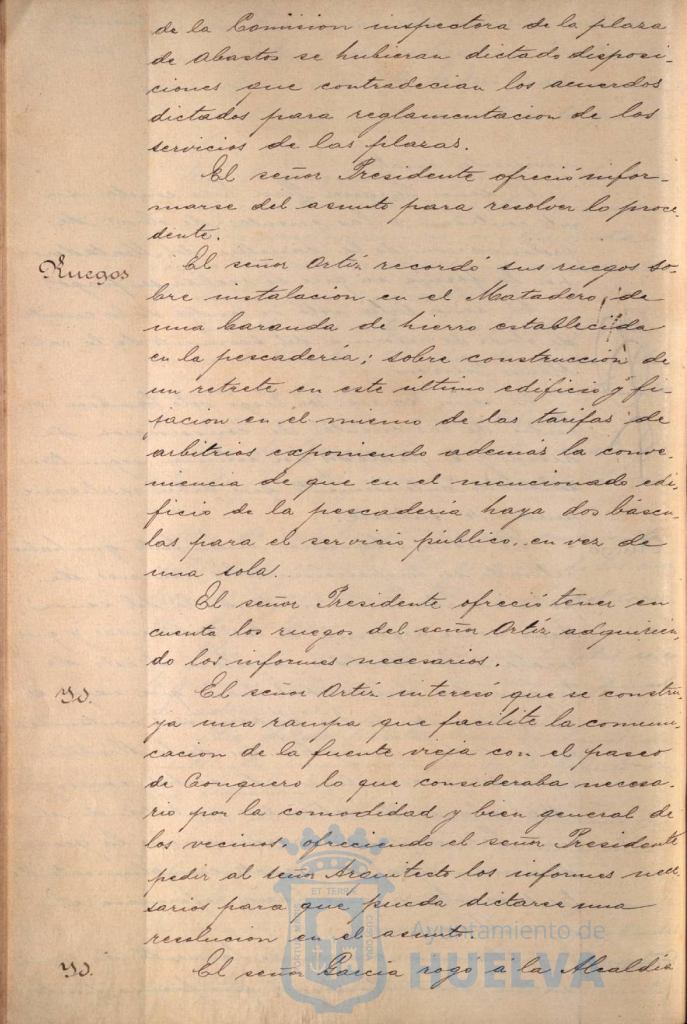 de la Comision inspectora de la plaza
de abastos se hubieran dictado disposi-
ciones que contradecian los acuerdos
dictados para reglamentacion de los
servicios de las plazas.
El señor Presidente ofreció infor-
marse del asunto para resolver lo proce-
dente.
Ruegos
El señor Ortiz recordó sus ruegos so-
bre instalacion en el Matadero, de
una baranda de hierro establecida
en la pescadería; sobre construccion de
un retrete en este último edificio y fi-
jacion en el mismo de las tarifas de
arbitrios exponiendo además la conve-
niencia de que en el mencionado edi-
ficio de la pescadería haya dos báscu-
las para el servicio público, en vez de
una sola.
El señor Presidente ofreció tener en
cuenta los ruegos del señor Ortiz adquirien-
do los informes necesarios.
Yd.
El señor Ortiz interesó que se constru-
ya una rampa que facilite la comuni-
cacion de la fuente vieja con el paseo
de Conquero lo que consideraba necesa-
rio por la comodidad y bien general de
los vecinos, ofreciendo el señor Presidente
pedir al señor Arquitecto los informes nece-
sarios para que pueda dictarse una
resolucion en el asunto.
Yd.
El señor Garcia rogó á la Alcaldía
ET TERRÆ
PORTUS MARIS
CUSTODIA
Ayuntamiento de
HUELVA